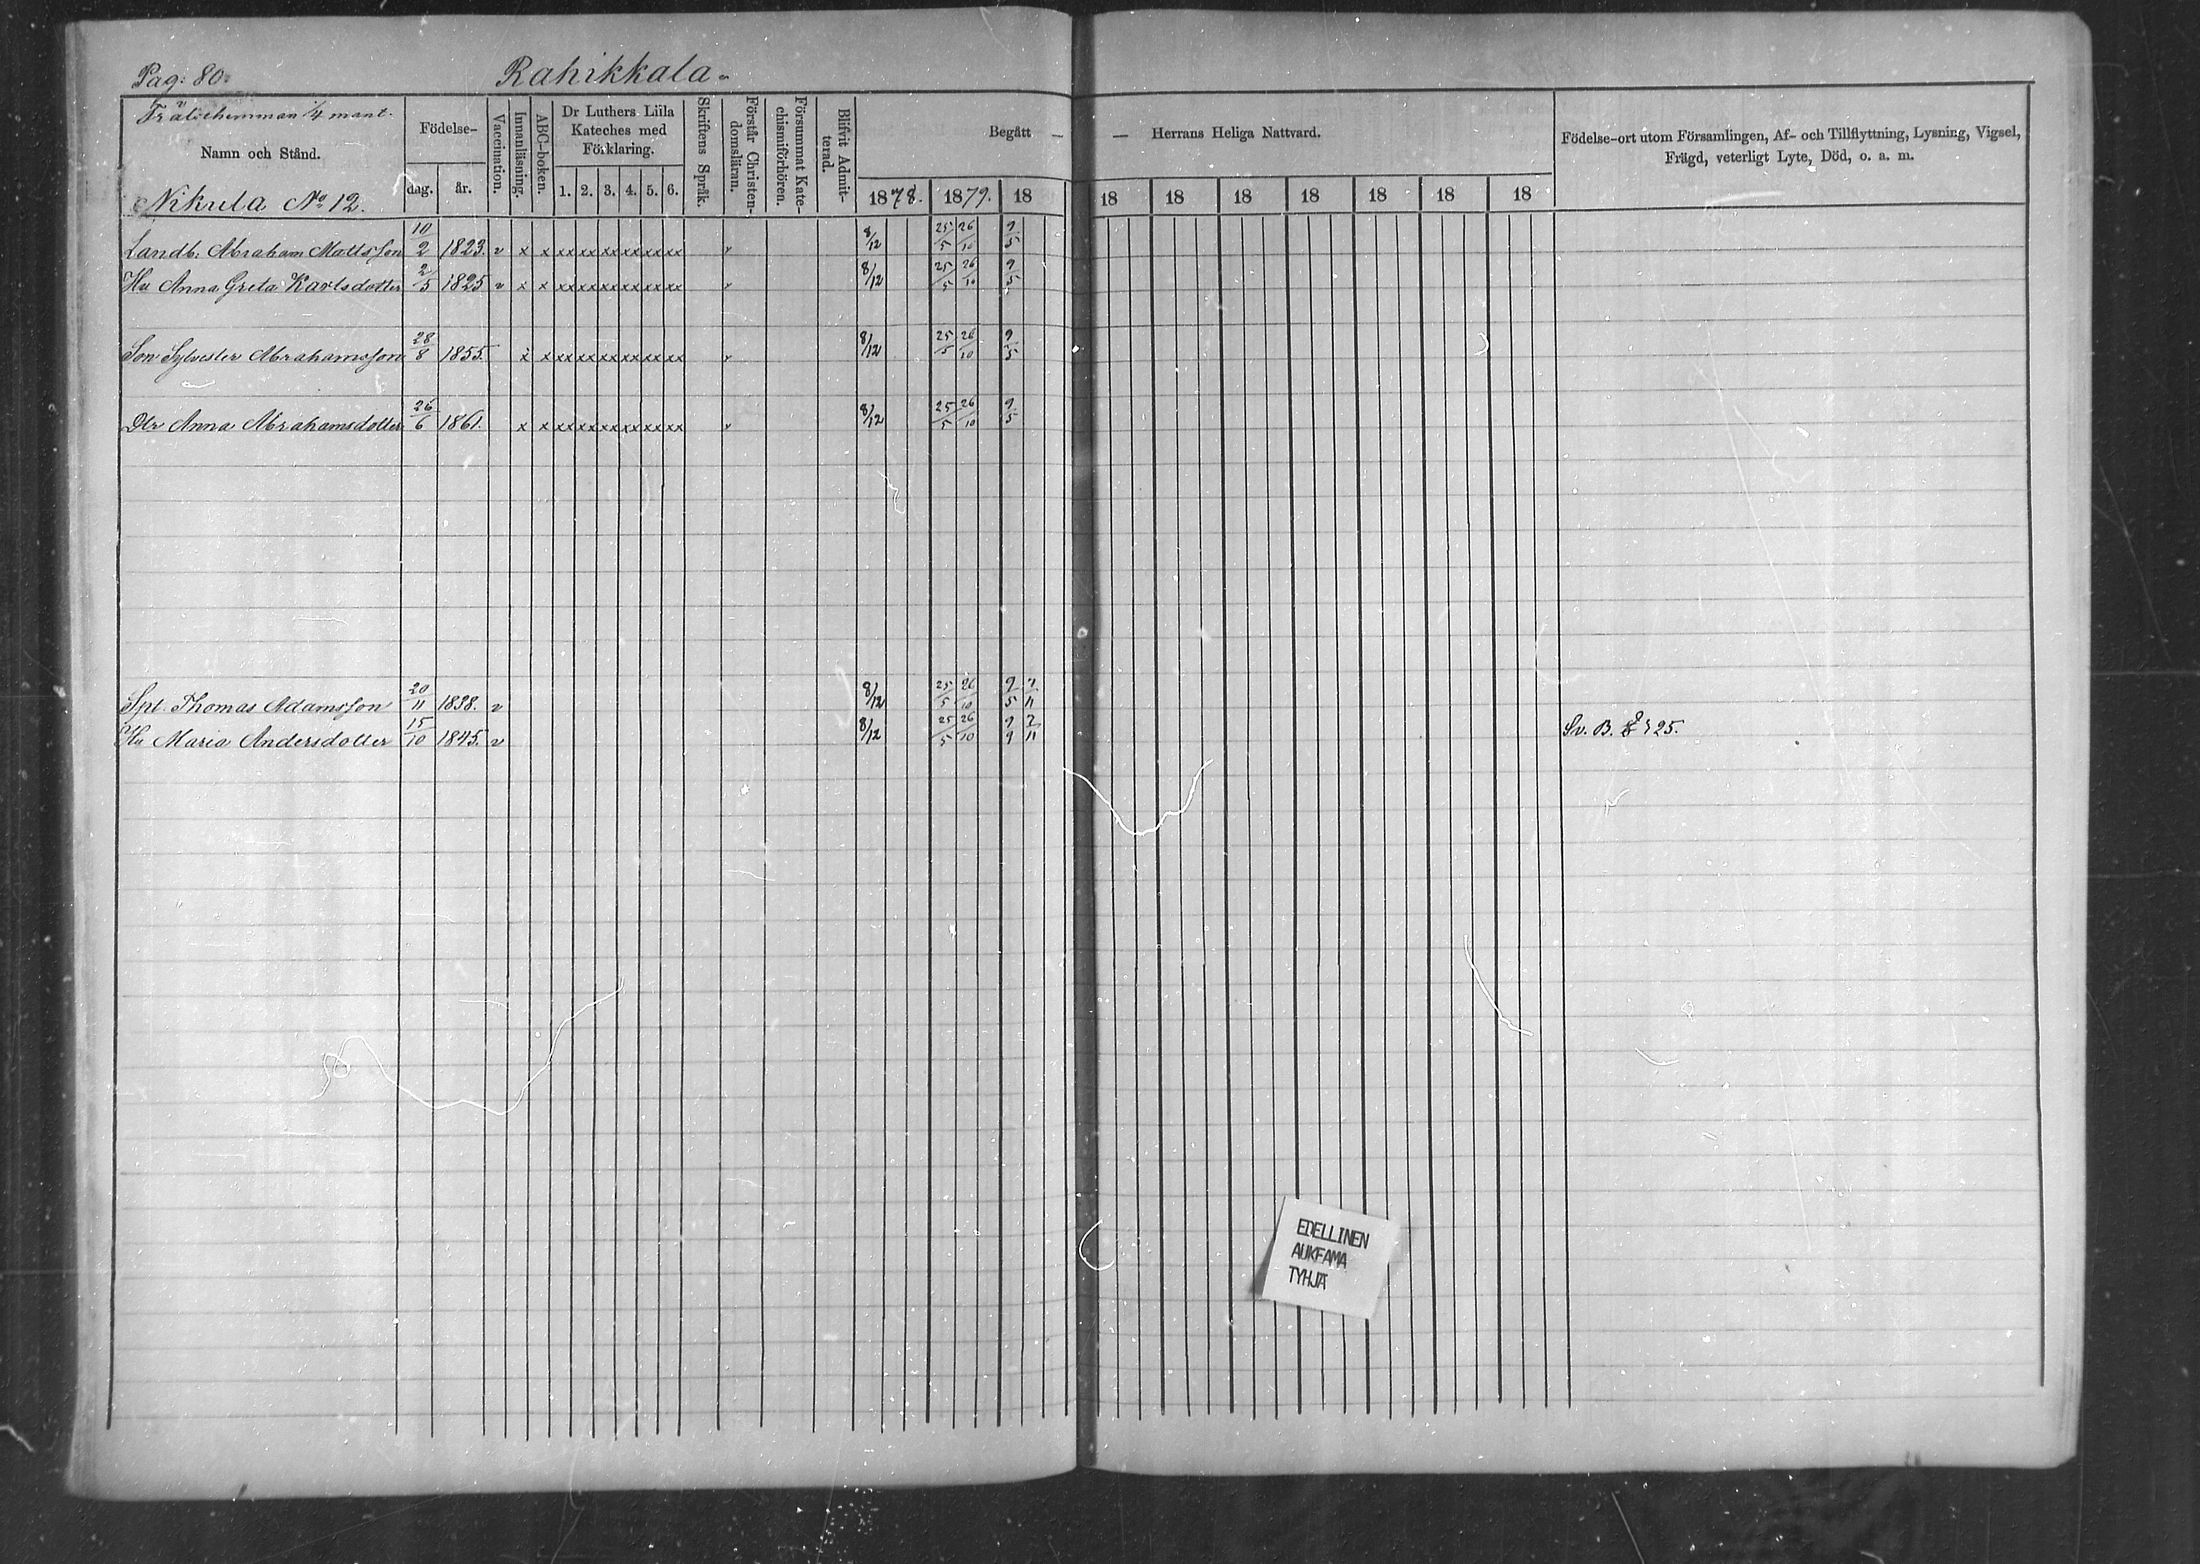 Pag: 80. Rahikkala
Frälsehemman 1/4 mant.
Namn och Stånd.
Nikula No 12.
Födelse-
dag. år.
Vaccination.
Innanläsning.
ABC-boken.
Dr Luthers Lilla Kateches med Förklaring.
1. 2. 3. 4. 5. 6.
Skriftens Språk.
Förstår Christendomsläran.
Försummat Katechismiförhören.
Blifvit Admitterad.
Begått — — Herrans Heliga Nattvard.
1878. 1879. 18 18 18 18 18 18 18 18
Födelse-ort utom Församlingen, Af- och Tillflyttning, Lysning, Vigsel,
Frägd, veterligt Lyte, Död, o. a. m.
Landb: Abraham Mattsson 10/2 1823. v x x xx xx xx xx xx xx v 8/12 25/5 26/10 9/5
Hu Anna Greta Karlsdotter 2/5 1825 v x x xx xx xx xx xx xx v 8/12 25/5 26/10 9/5
Son Sylvester Abrahamsson 28/8 1855. x x xx xx xx xx xx xx v 8/12 25/5 26/10 9/5
Dtr Anna Abrahamsdotter 26/6 1861. x x xx xx xx xx xx xx v 8/12 25/5 26/10 9/5
Spt. Thomas Adamsson 20/11 1838. v 8/12 25/5 26/10 9/5 7/11
Hu Maria Andersdotter 15/10 1845. v 8/12 25/5 26/10 9/9 7/11 Sv. B.
EDELLINEN
AUKEAMA
TYHJÄ